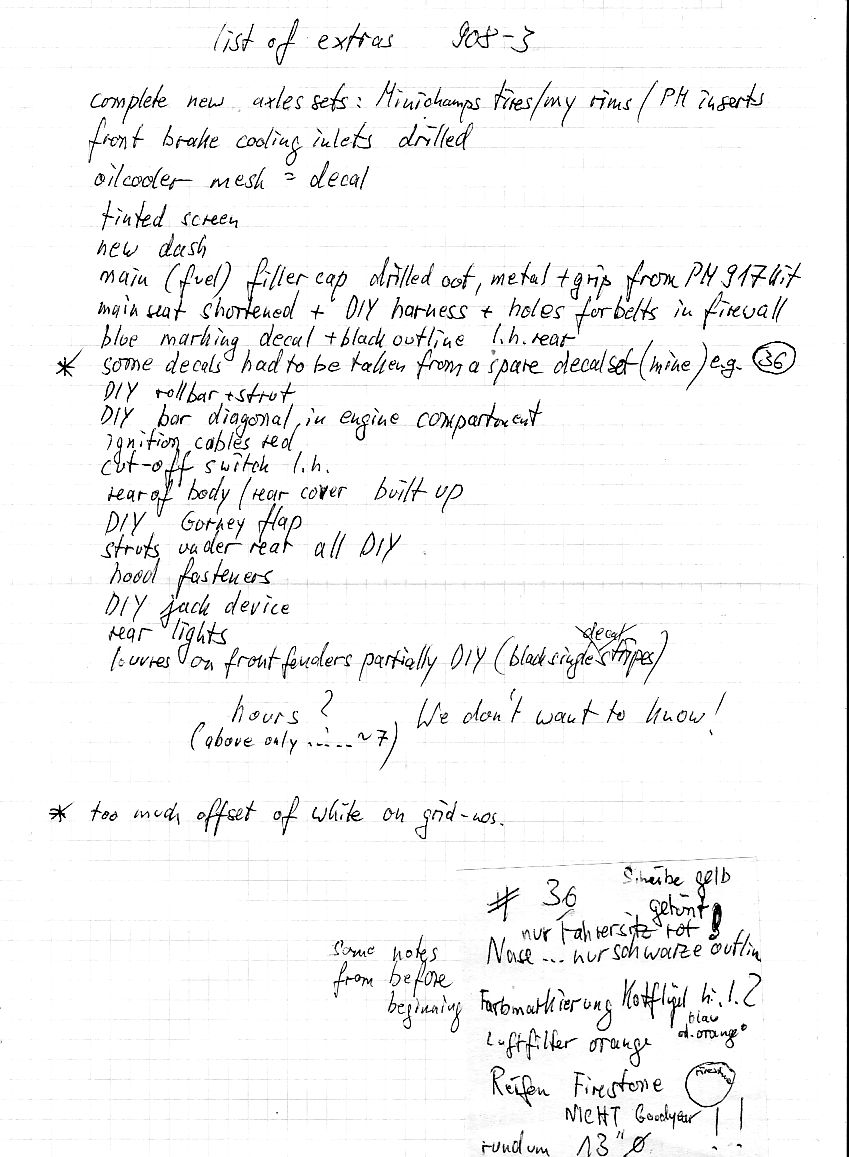 list of extras 908-3
complete new axles sets: Minichamps tires/my rims / PM inserts
front brake cooling inlets drilled
oilcooler mesh = decal
tinted screen
new dash
main (fuel) filler cap drilled out, metal + grip from PM 917 kit
main seat shortened + DIY harness + holes for belts in firewall
blue marking decal + black outline l.h. rear
* some decals had to be taken from a spare decalset (mine) e.g. 36
DIY rollbar + strut
DIY bar diagonal in engine compartment
ignition cables red
cut-off switch l.h.
rear of body (rear cover built up
DIY Gurney flap
struts under rear all DIY
hood fasteners
DIY jack device
rear lights
decal
louvres on front fenders partially DIY (black single stripes)
hours? We don't want to know!
(above only ..... ~7)
* too much offset of white on grid-nos.
some notes
from before
beginning
# 36 Scheibe gelb
getönt
nur Fahrersitz rot !
Nase ... nur schwarze outlin
Farbmarkierung Kotflügel hi. l. ?
blau
Luftfilter orange od. orange
Reifen Firestone Firestone
NICHT Goodyear !!
rundum 13" Ø